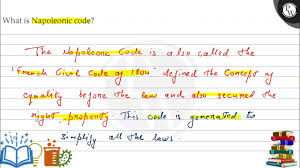 What is Napoleonic code?
The Napoleonic Code is also called the
'French Civil Code of 1804' defined the Concept of
equality before the law and also secured the
right property. This code is generated to
simplify all the laws.